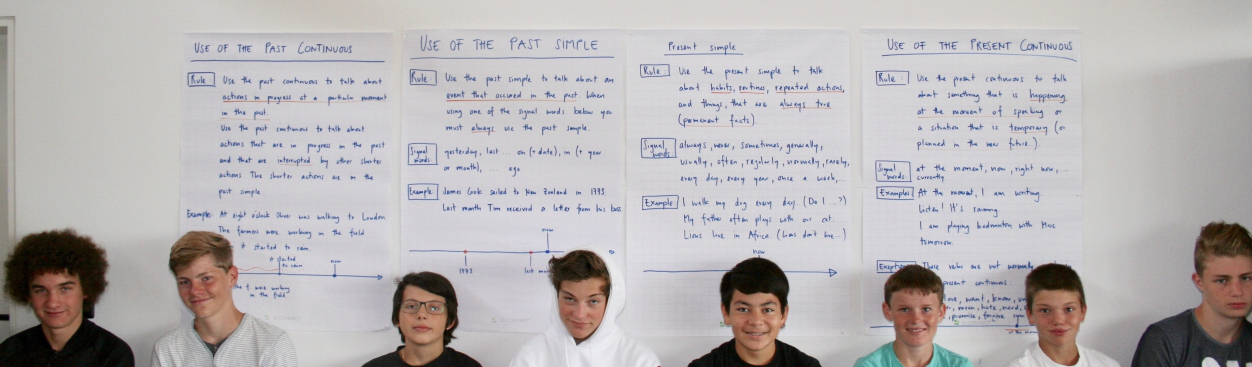 USE OF THE PAST CONTINUOUS
Rule: Use the past continuous to talk about
actions in progress at a particular moment
in the past.
Use the past continuous to talk about
actions that are in progress in the past
and that are interrupted by other shorter
actions. The shorter actions are in the
past simple.
Example: At eight o'clock Oliver was walking to London
The farmers were working in the field
it started to rain
it started
to rain
now
the f. were working
in the field
USE OF THE PAST SIMPLE
Rule: Use the past simple to talk about an
event that occured in the past. When
using one of the signal words below you
must always use the past simple.
Signal words: yesterday, last ... on (+ date), in (+ year
or month), ... ago
Example: James Cook sailed to New Zealand in 1773.
Last month Tim received a letter from his boss
now
1773
last
Present simple
Rule: Use the present simple to talk
about habits, routines, repeated actions,
and things, that are always true
(permanent facts).
Signal words: always, never, sometimes, generally,
usually, often, regularly, normally, rarely,
every day, every year, once a week, ...
Example: I walk my dog every day. (Do I ...?)
My father often plays with our cat.
Lions live in Africa. (Lions don't live...)
now
USE OF THE PRESENT CONTINUOUS
Rule: Use the present continuous to talk
about something that is happening
at the moment of speaking or
a situation that is temporary (or
planned in the near future.).
Signal words: at the moment, now, right now, ...
currently
Examples: At the moment, I am writing.
Listen! It's raining
I am playing badminton with Max
tomorrow.
Exceptions: These verbs are not normally
present continuous:
love, want, know,
mean, hate, need,
promise, forgive